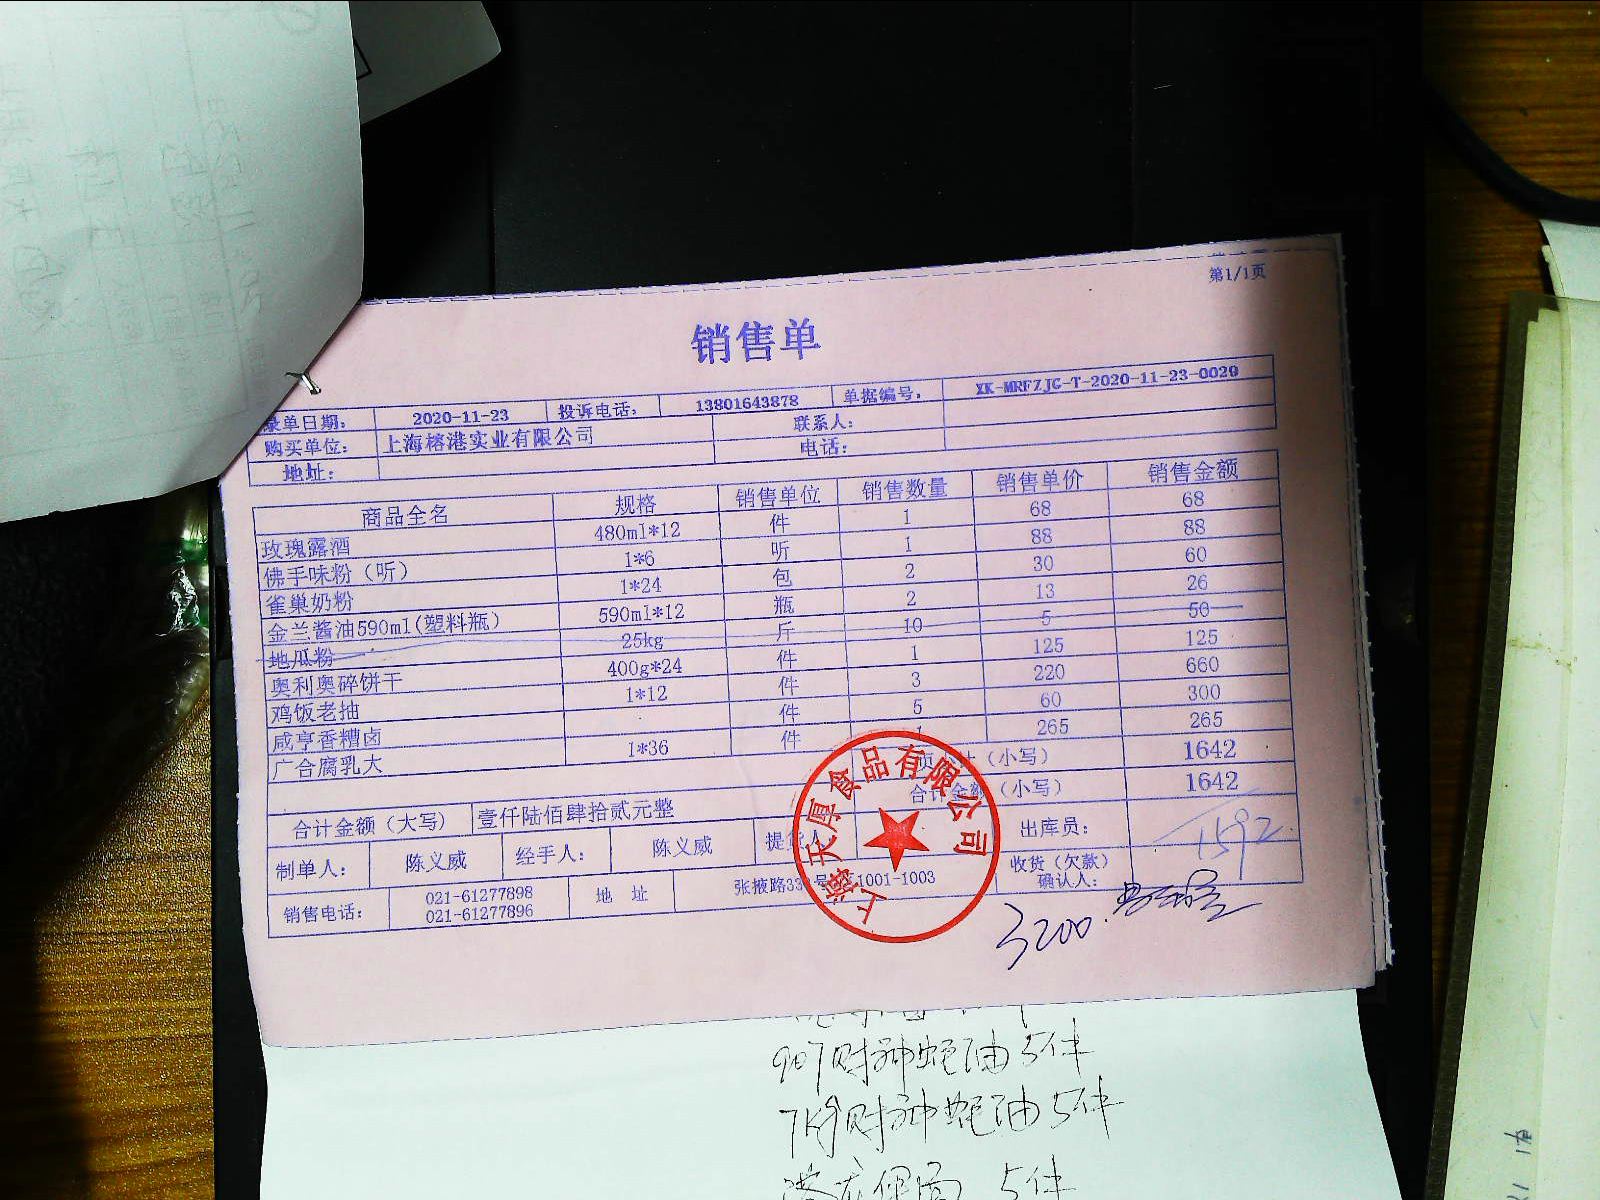 第1/1页
销售单
录单日期: 2020-11-23 投诉电话: 13801643878 单据编号: XK-MRFZJG-T-2020-11-23-0029
购买单位: 上海榕港实业有限公司 联系人:
地址: 电话:
商品全名 规格 销售单位 销售数量 销售单价 销售金额
玫瑰露酒 480ml*12 件 1 68 68
佛手味粉（听） 1*6 听 1 88 88
雀巢奶粉 1*24 包 2 30 60
金兰酱油590ml(塑料瓶) 590ml*12 瓶 2 13 26
地瓜粉 25kg 斤 10 5 50
奥利奥碎饼干 400g*24 件 1 125 125
鸡饭老抽 1*12 件 3 220 660
咸亨香糟卤 件 5 60 300
广合腐乳大 1*36 件 1 265 265
（小写） 1642
合计金额（大写） 壹仟陆佰肆拾贰元整 合计金额（小写） 1642
制单人: 陈义威 经手人: 陈义威 提货人 出库员:
1592.
销售电话: 021-61277898 021-61277896 地 址 张掖路33 号 1001-1003 收货（欠款）确认人:
上海天厚食品有限公司
3200.
907财神蚝油5件
7kg财神蚝油5件
5件